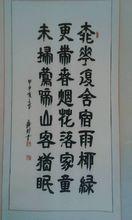 桃紅復含宿雨柳綠
更帶春烟花落家童
未掃鶯啼山客猶眠